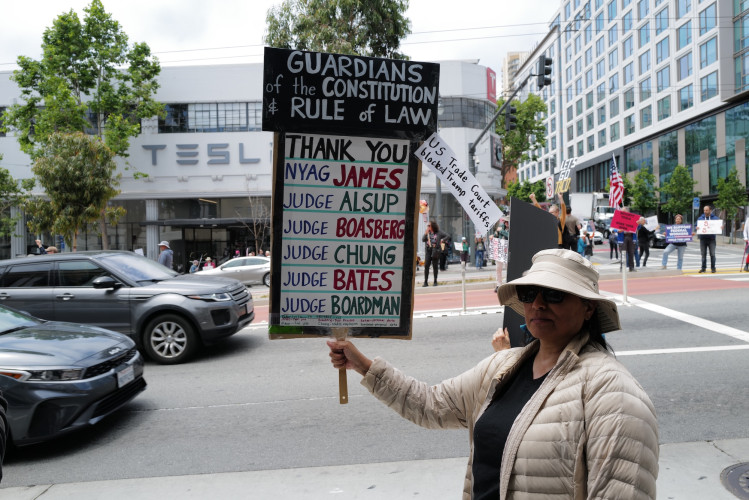 GUARDIANS
of the CONSTITUTION
& RULE of LAW
THANK YOU
NYAG JAMES
JUDGE ALSUP
JUDGE BOASBERG
JUDGE CHUNG
JUDGE BATES
JUDGE BOARDMAN
US Trade Court
blocked Trump tariffs
TESL
LET'S